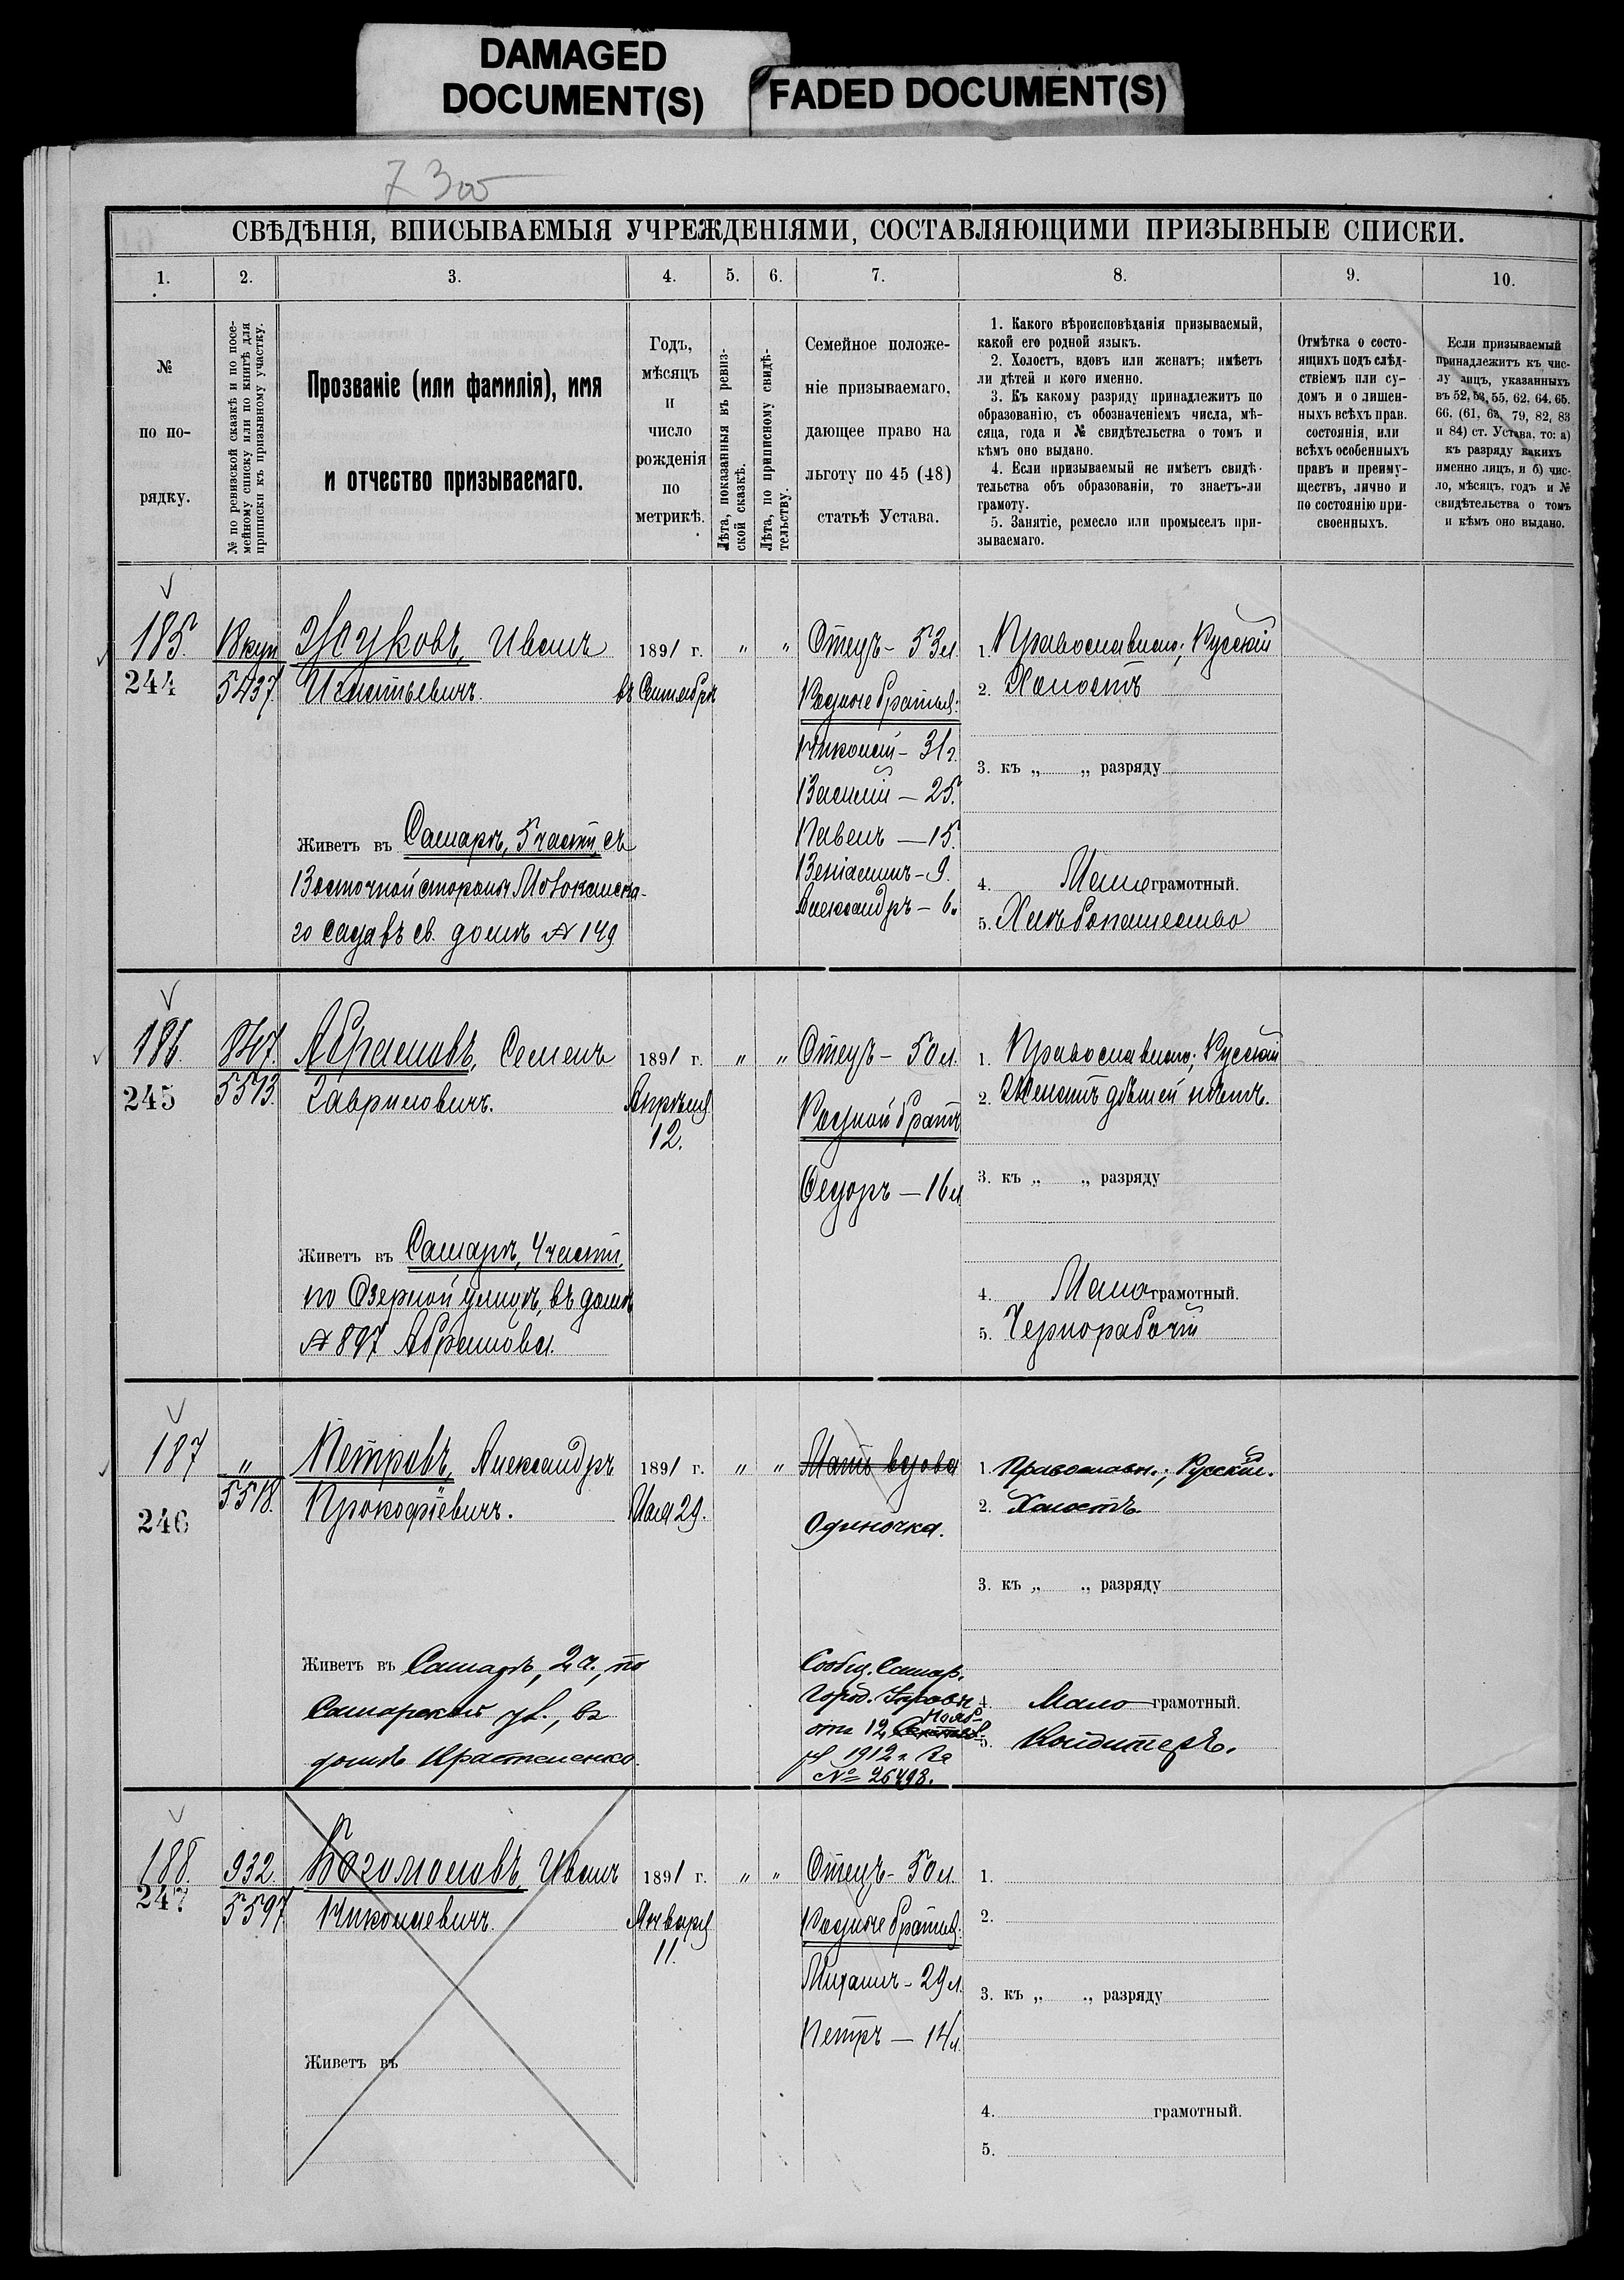 DAMAGED
DOCUMENT(S)
FADED DOCUMENT(S)
7 300
СВѢДѢНІЯ, ВПИСЫВАЕМЫЯ УЧРЕЖДЕНІЯМИ, СОСТАВЛЯЮЩИМИ ПРИЗЫВНЫЕ СПИСКИ.
1. 2. 3. 4. 5. 6. 7. 8. 9. 10.
№
по по-
рядку.
№ по ревизской сказкѣ и по посе-
мейному списку или по книгѣ для
приписки къ призывному участку.
Прозваніе (или фамилія), имя
и отчество призываемаго.
Годъ,
мѣсяцъ
и
число
рожденія
по
метрикѣ.
Лѣта, показанныя въ ревиз-
ской сказкѣ.
Лѣта, по приписному свидѣ-
тельству.
Семейное положе-
ніе призываемаго,
дающее право на
льготу по 45 (48)
статьѣ Устава.
1. Какого вѣроисповѣданія призываемый,
какой его родной языкъ.
2. Холостъ, вдовъ или женатъ; имѣетъ
ли дѣтей и кого именно.
3. Къ какому разряду принадлежитъ по
образованію, съ обозначеніемъ числа, мѣ-
сяца, года и № свидѣтельства о томъ и
кѣмъ оно выдано.
4. Если призываемый не имѣетъ свидѣ-
тельства объ образованіи, то знаетъ-ли
грамоту.
5. Занятіе, ремесло или промыселъ при-
зываемаго.
Отмѣтка о состо-
ящихъ подъ слѣд-
ствіемъ или су-
домъ и о лишен-
ныхъ всѣхъ прав.
состоянія, или
всѣхъ особенныхъ
правъ и преиму-
ществъ, лично и
по состоянію при-
своенныхъ.
Если призываемый
принадлежитъ къ чис-
лу лицъ, указанныхъ
въ 52, 53, 55, 62, 64, 65,
66, (61, 63, 79, 82, 83
и 84) ст. Устава, то: а)
къ разряду какихъ
именно лицъ, и б) чис-
ло, мѣсяцъ, годъ и №
свидѣтельства о томъ
и кѣмъ оно выдано.
185.
244
Вкуп
5437.
Жуковъ, Иванъ
Игнатьевичъ.
Живетъ въ Самарѣ, 5 части, съ
Восточной стороны Молоканска-
го сада въ св. домѣ № 149
1891 г.
въ Сентябрѣ
" "
Отецъ - 53 л.
Родные братья:
Николай - 31 г.
Василій - 25.
Павелъ - 15.
Веніаминъ - 9.
Александръ - 6.
1. Православнаго; Русскій
2. Холостъ
3. къ „ „ разряду
4. Мало грамотный.
5. Хлѣбопашество
186.
245
847.
5513.
Абрамовъ, Семенъ
Гавриловичъ.
Живетъ въ Самарѣ, 4 части,
по Озерной улицѣ, въ домѣ
№ 897 Абрамова.
1891 г.
Апрѣля
12.
" "
Отецъ - 50 л.
Родной братъ
Ѳедоръ - 16 л.
1. Православнаго; Русскій
2. Женатъ дѣтей нѣтъ.
3. къ „ „ разряду
4. Мало грамотный.
5. Чернорабочій
187
246
"
5518.
Петровъ, Александръ
Прокофіевичъ.
Живетъ въ Самарѣ, 2 ч., по
Самарской ул., въ
домѣ
1891 г.
Мая 29.
" "
Мать вдова
Одиночка.
Сообщ. Самар.
Город. Управы
Нояб-
отъ 12
1912 г. за
№ 26498.
1. Православн.; Русскій.
2. Холостъ
3. къ „ „ разряду
4. Мало грамотный.
5. Кондитеръ.
188.
247
932.
5597
Богомоловъ, Иванъ
Николаевичъ.
Живетъ въ
1891 г.
Января
11.
" "
Отецъ - 50 л.
Родные братья:
Михаилъ - 29 л.
Петръ - 14 л.
1.
2.
3. къ „ „ разряду
4. грамотный.
5.